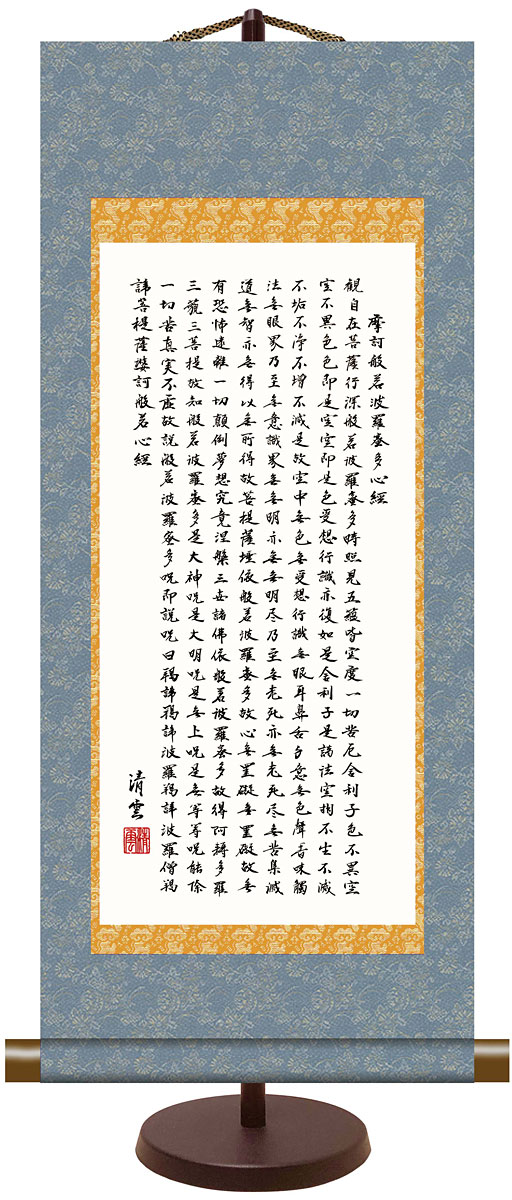 摩訶般若波羅蜜多心経
観自在菩薩行深般若波羅蜜多時照見五蘊皆空度一切苦厄舎利子色不異空
空不異色色即是空空即是色受想行識亦復如是舎利子是諸法空相不生不滅
不垢不浄不増不減是故空中無色無受想行識無眼耳鼻舌身意無色聲香味觸
法無眼界乃至無意識界無無明亦無無明尽乃至無老死亦無老死尽無苦集滅
道無智亦無得以無所得故菩提薩埵依般若波羅蜜多故心無罣礙無罣礙故無
有恐怖遠離一切顛倒夢想究竟涅槃三世諸佛依般若波羅蜜多故得阿耨多羅
三藐三菩提故知般若波羅蜜多是大神呪是大明呪是無上呪是無等等呪能除
一切苦真実不虚故説般若波羅蜜多呪即説呪曰羯諦羯諦波羅羯諦波羅僧羯
諦菩提薩婆訶般若心経
清雲
清雲